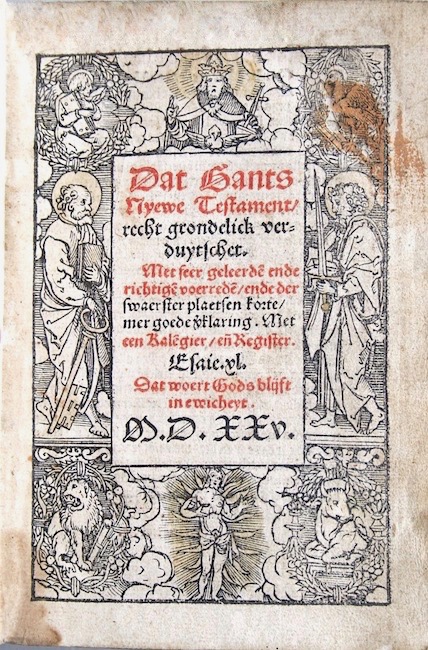 Dat Gants
Nyewe Testament/
recht grondelick ver-
duytschet.
Met seer geleerdē ende
richtigē voerredē/ende der
swaerster plaetsen korte/
mer goede v̄klaring. Met
een Kalēgier/eñ Register.
Esaie.xl.
Dat woert Gods blijft
in ewicheyt.
M.D.XXv.